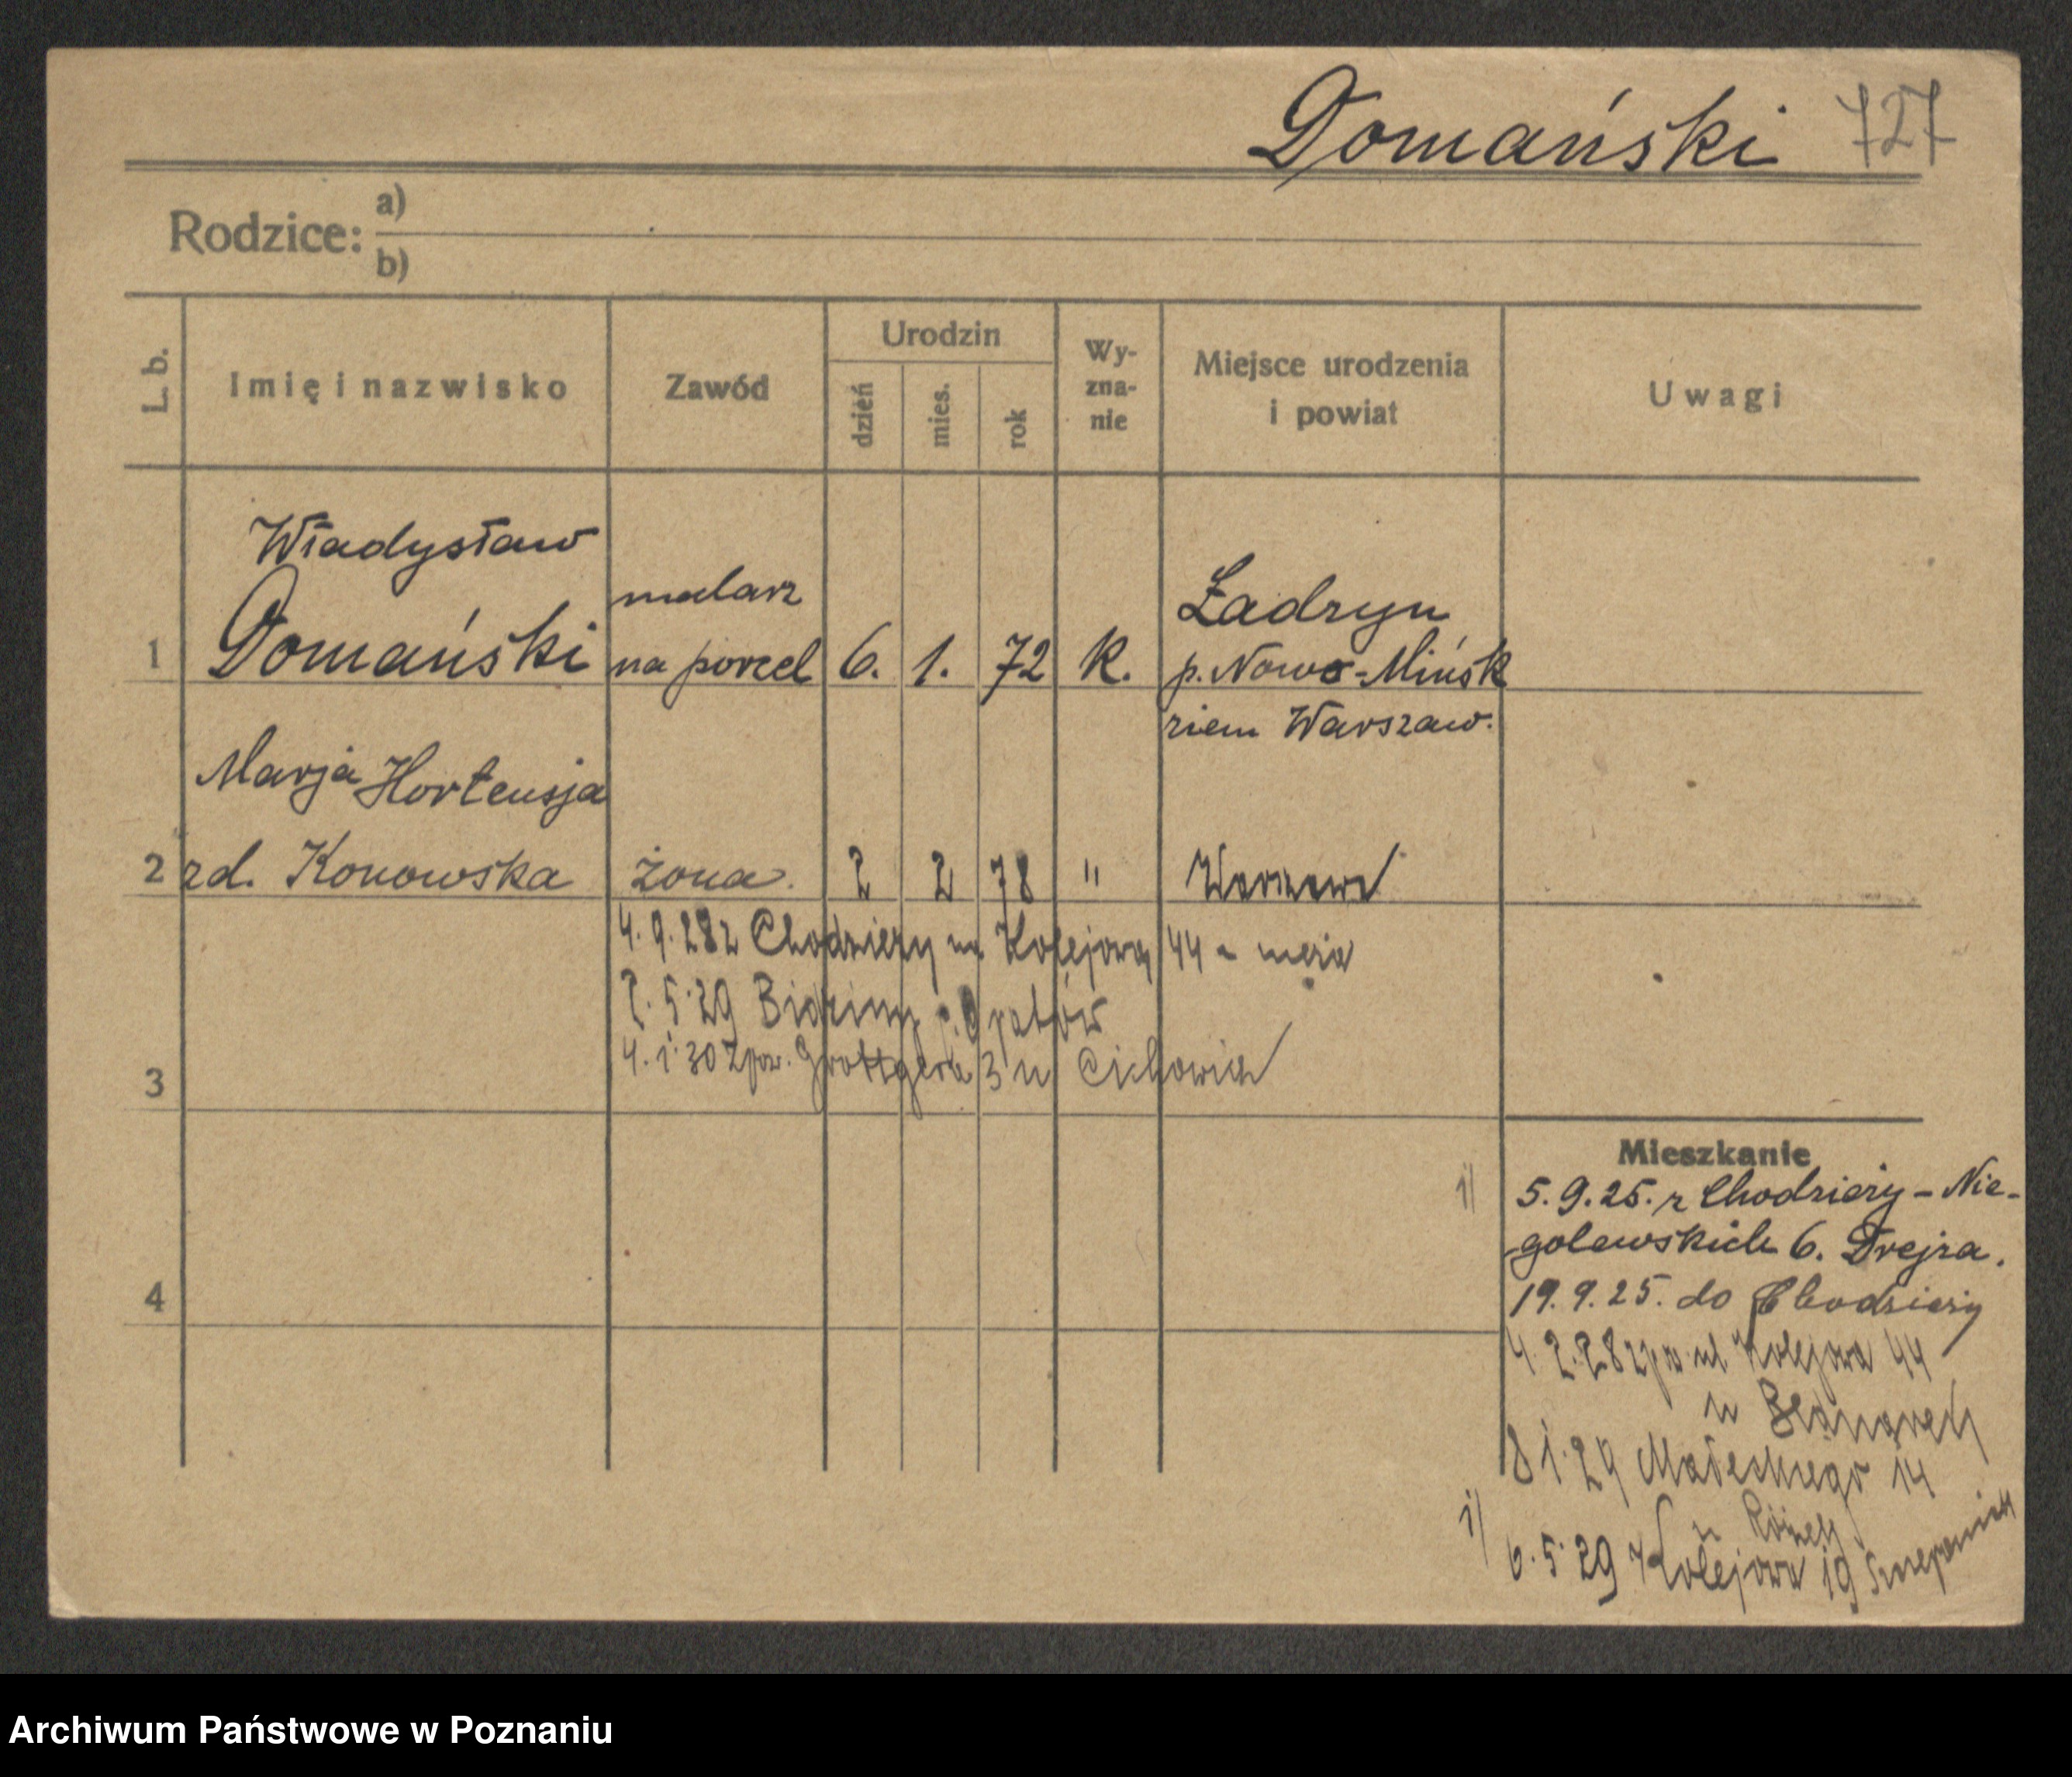 Domański 727
Rodzice: a)
b)
L. b. Imię i nazwisko Zawód Urodzin dzień mies. rok Wy-zna-nie Miejsce urodzenia i powiat Uwagi
Władysław
malarz Ładzyn
1 Domański na porcel 6. 1. 72 K. p. Nowo-Mińsk
ziem Warszaw.
Marja Hortensja
2 zd. Konowska żona. 2 2 78 " Warszawa
4. 9. 28 z Chodzieży na Kolejową 44
2. 5. 29
4. 1. 30 Zpow. Grottgera 3 u Cichowicz
3
Mieszkanie
1) 5. 9. 25. z Chodzieży - Nie-
golewskich 6. Drejza.
4 19. 9. 25. do Chodzieży
4. 2. 28 zpow ul Kolejowa 44
u
8 1. 29 Małeckiego 14
u
1) 6. 5. 29 Kolejowa 19
Archiwum Państwowe w Poznaniu